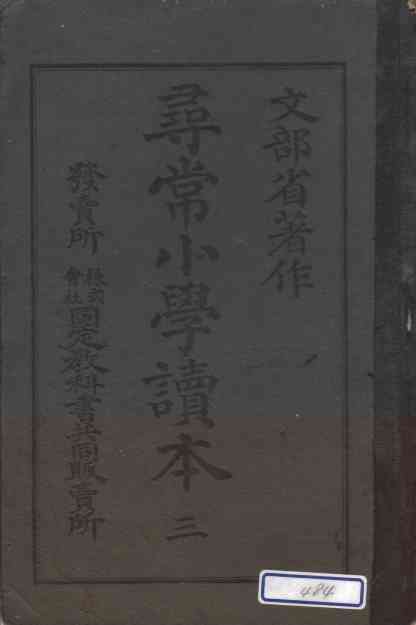 文部省著作
尋常小學讀本 三
發賣所 株式會社 國定敎科書共同販賣所
484